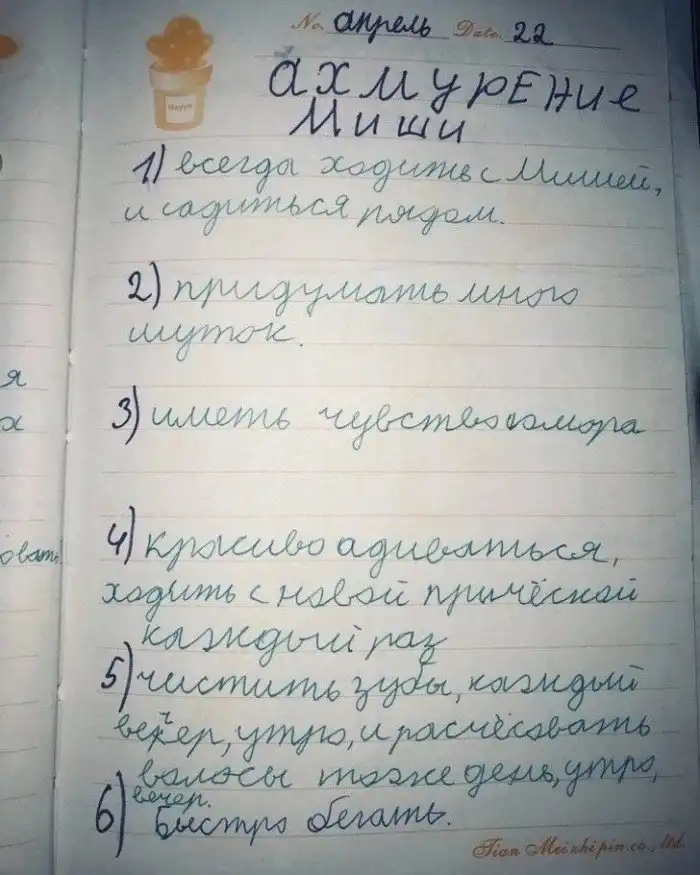 No. апрель Date. 22
Happy
ахмурение
Миши
1) всегда ходить с Мишей,
и садиться рядом.
2) придумать много
шуток.
3) иметь чувство юмора
я
х
4) красиво адиваться,
овать
ходить с новой причёской
каждый раз
5) чистить зубы, каждый
вечер, утро, и расчёсовать
волосы тоже день, утро,
вечер.
6) Быстро бегать.
Tian Meizhipin co., ltd.